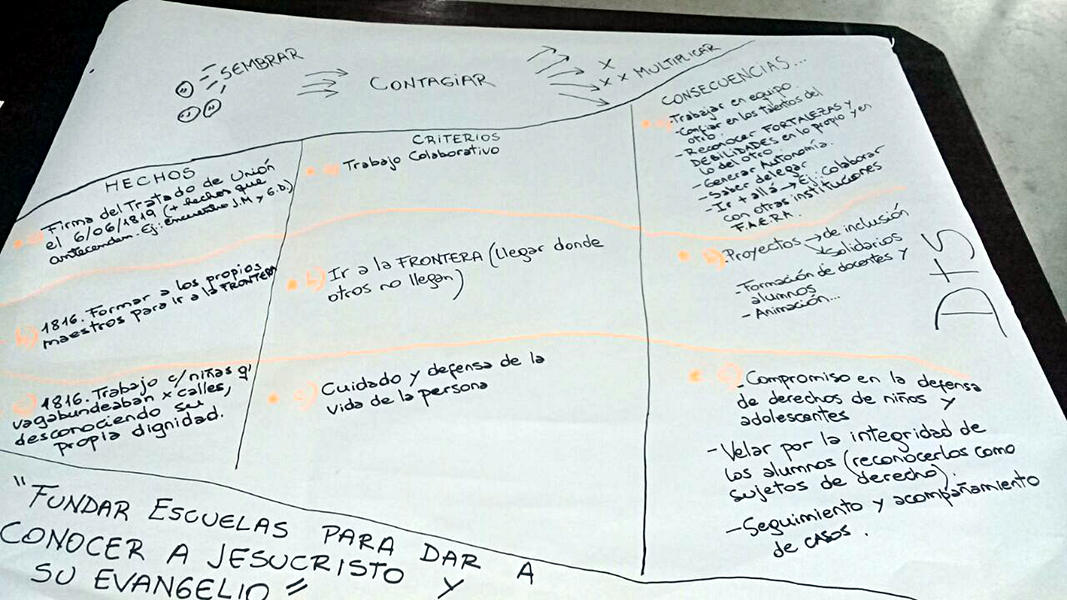 SEMBRAR
CONTAGIAR
x
x x MULTIPLICAR
HECHOS
a) Firma del Tratado de Unión
el 6/06/1819 (+ hechos que
antecenden. Ej: Encuentro J.M y G.D.)
b) 1816. Formar a los propios
maestros para ir a la FRONTERA
c) 1816. Trabajo c/niñas q'
vagabundeaban x calles,
desconociendo su
propia dignidad.
CRITERIOS
a) Trabajo Colaborativo
b) Ir a la FRONTERA (llegar donde
otros no llegan)
c) Cuidado y defensa de la
vida de la persona
CONSECUENCIAS...
a) -Trabajar en equipo
-Confiar en los talentos del
otro.
-Reconocer FORTALEZAS y
DEBILIDADES en lo propio y en
lo del otro
-Generar Autonomía.
-Saber delegar
-Ir + allá → Ej: colaborar
con otras instituciones
F.A.E.R.A.
b) Proyectos → de inclusión
Solidarios
-Formación de docentes y
alumnos
-Animación...
c) -Compromiso en la defensa
de derechos de niños y
adolescentes
-Velar por la integridad de
los alumnos (reconocerlos como
sujetos de derecho).
-Seguimiento y acompañamiento
de casos.
"FUNDAR ESCUELAS PARA DAR A
CONOCER A JESUCRISTO Y
SU EVANGELIO"